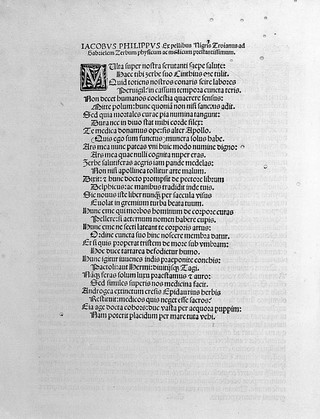 IACOBVS PHILIPPVS Ex pellibus Nigris Troianus ad
Gabrielem Zerbum physicum ac medicum prestantissimum.
Multa super nostra scrutanti saepe salute:
Haec tibi zerbe suo Cinthius ore tulit.
Quid toties nostros conaris scire labores
Peruigil: in cassum tempora cuncta teris.
Non decet humanos coelestia quaerere sensus:
Mitte polum: hunc quoniam non nisi sanctus adit.
Sed quia mortales curae pia numina tangunt:
Te medica donamus ope: sis alter Apollo.
Quis ego sum functus: munera solus habe.
Ars mea nunc pateat vni huic modo numine digno:
Ars mea quae nulli cognita nuper erat.
Non nisi apollinea tollitur arte malum.
Dixit: & hunc docto prompsit de pectore librum
Delphicus: ac manibus tradidit inde tuis.
Sic nouus iste liber per saecula visus
Euolat in gremium turba beata tuum.
Hunc eme qui morbos hominum de corpore curas
Hunc eme ne sect lateant te corporis artus:
Ordine cuncta suo hinc noscere membra datur.
Et si quis properat tristem de more sub vmbram:
Hoc duce tartarea defodietur humo.
Hunc igitur iuuenes indis praeponite conchis:
Pactoli: aut Hermi: diuitijsque Tagi.
Sed similes superis nos medicina facit.
Androgea extinctum cressis Epidaurius herbis
Restituit: medicos quis neget esse sacros:
Eia age docta cohors: huc vasta per aequora puppim:
Nam poterit placidum per mare tuta vehi.